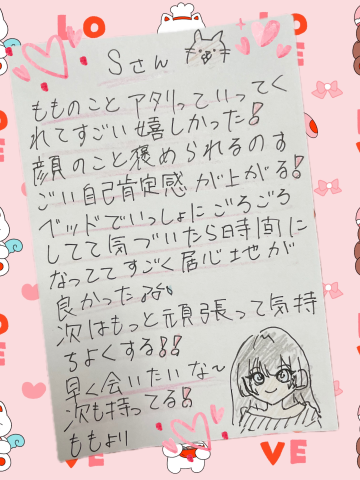 LO
VE
Sさん
もものことアタリっていってく
れてすごい嬉しかった!
顔のこと褒められるのす
ごい自己肯定感が上がる!
ベッドでいっしょにごろごろ
してて気づいたら時間に
なっててすごく居心地が
良かった
次はもっと頑張って気持
ちよくする!!
早く会いたいな〜
次も持ってる!!
ももより
LOVE